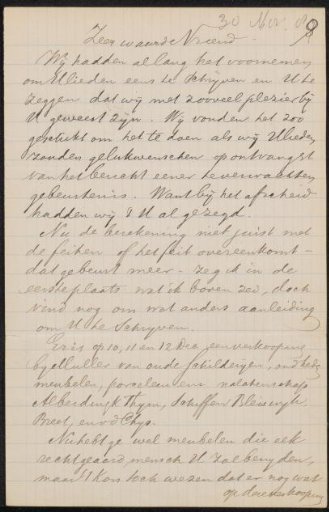 30 Nov. 89
Zeer waarde Vriend -
Wij hadden al lang het voornemen
om Ulieden eens te schrijven en U te
zeggen dat wij met zooveel plezier bij
U geweest zijn. Wij vonden het zoo
geschikt om het te doen als wij Ulieden
zouden gelukwenschen op ontvangst
van het bericht eener te verwachten
gebeurtenis. Want bij het afscheid
hadden wij 't U al gezegd.
Nu de berekening niet juist met
de feiten of het feit overeenkomt -
dat gebeurt meer - zeg ik in de
eerste plaats wat ik boven zei, doch
vind nog om wat anders aanleiding
om U te schrijven.
Er is op 10, 11 en 12 Dec. een verkooping
bij Muller van oude schilderijen, oudheden
meubelen, porcelein enz nalatenschap
Alberdingk Thym, Scheffer, Bleiswyk
Preet,
Nu hebt ge wel meubelen die elk
rechtgeaard mensch U zal benijden,
maar 't kon toch wezen dat er nog wat
op die verkooping